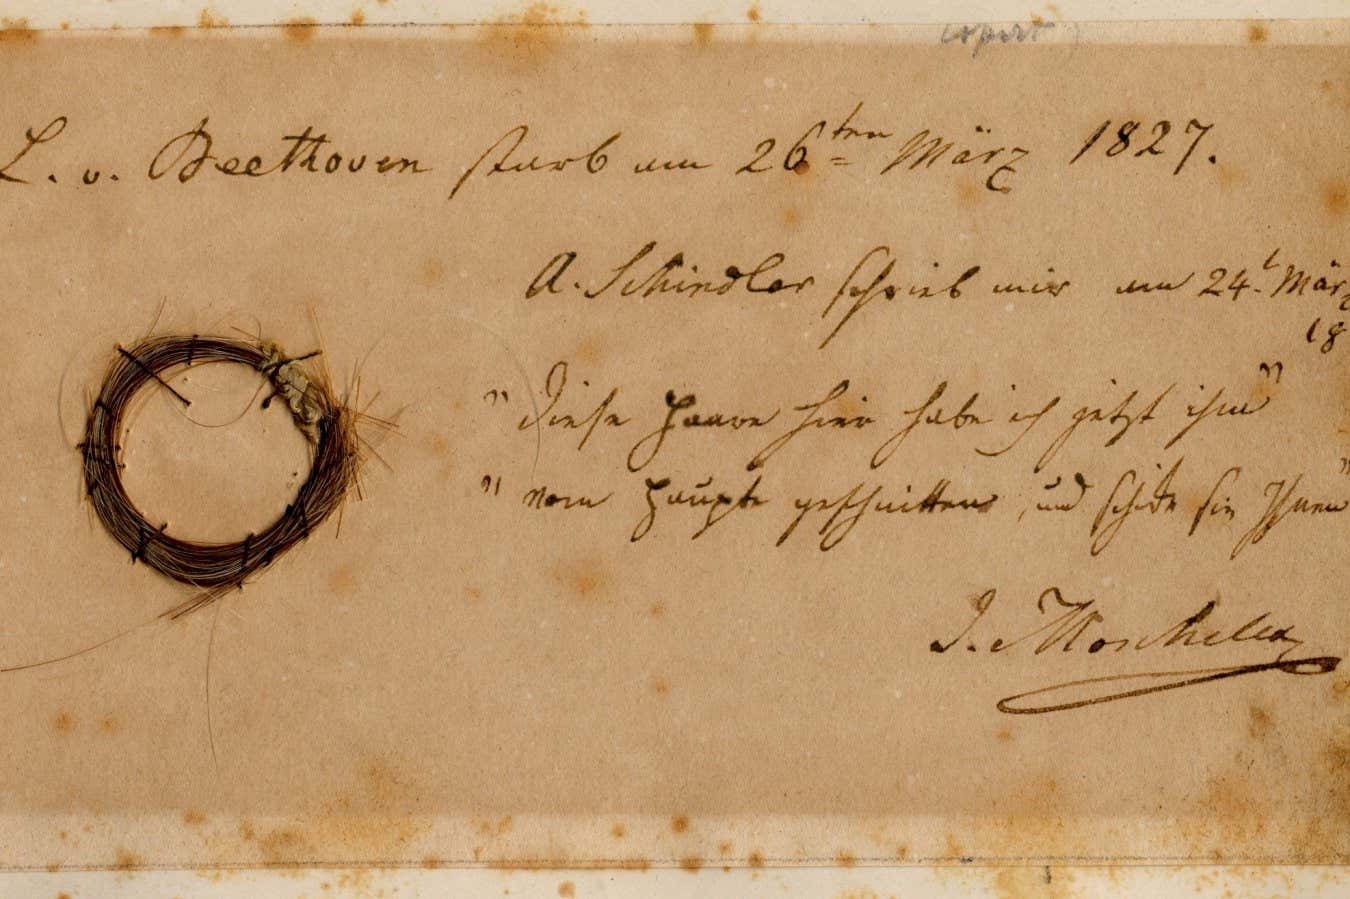 L. v. Beethoven starb am 26ten März 1827.
A. Schindler schrieb mir am 24t März
18
" Diese Haare hier habe ich jetzt ihm "
" vom Haupte geschnitten, und schicke sie Ihnen "
J. Moscheles